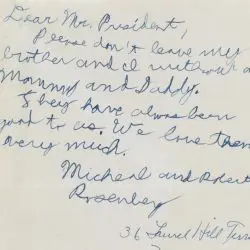 Dear Mr. President,
Please don't leave my
brother and I without a
Mommy and Daddy.
They have always been
good to us. We love them
very much.
Michael and Robert
Rosenberg
36 Laurel Hill Terr